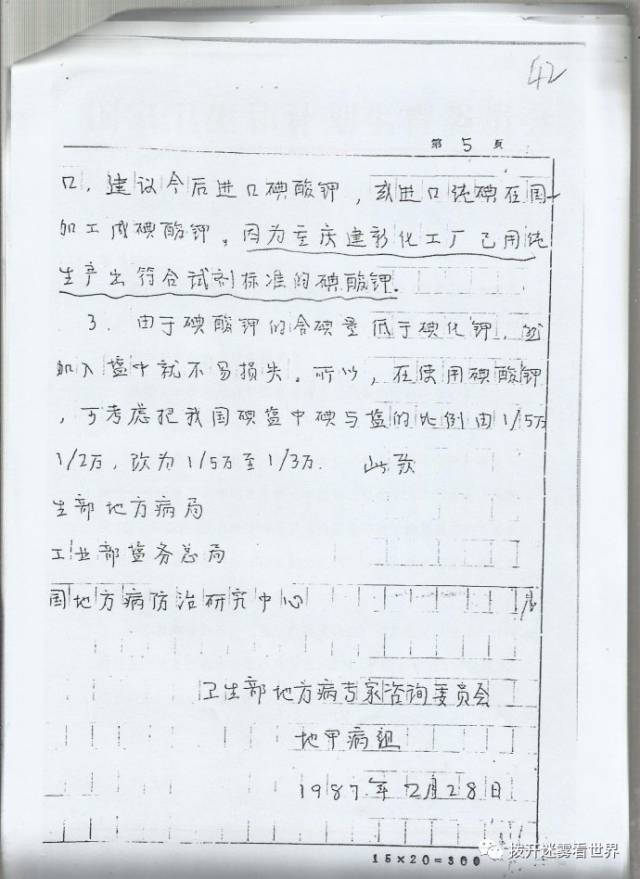 42
第 5 頁
口，建议今后进口碘酸钾，或进口纯碘在国
加工成碘酸钾。因为重庆建新化工厂已用纯
生产出符合试剂标准的碘酸钾。
3. 由于碘酸钾的含碘量低于碘化钾，
加入盐中就不易损失。所以，在使用碘酸钾
，可考虑把我国碘盐中碘与盐的比例由1/5万
1/2万，改为1/5万至1/3万. 此致
生部地方病局
工业部盐务总局
国地方病防治研究中心
卫生部地方病专家咨询委员会
地甲病组
1987年2月28日
15×20=300
拨开迷雾看世界